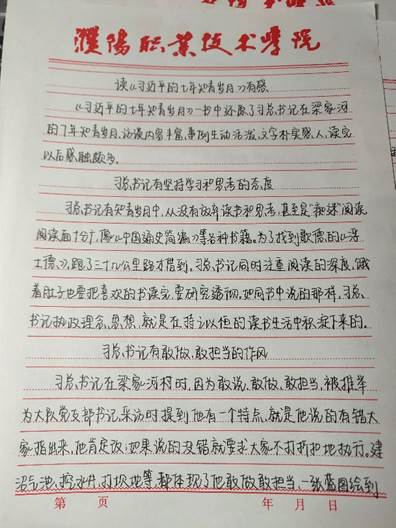 濮阳职业技术学院
读《习近平的七年知青岁月》有感
《习近平的七年知青岁月》一书中还原了习总书记在梁家河
的7年知青岁月,访谈内容丰富,事例生动活泼,文字朴实感人,读完
以后感触颇多。
习总书记有坚持学习和思考的态度
习总书记在知青岁月中,从没有放弃读书和思考,甚至是"痴迷"阅读
阅读面十分广,像《中国通史简编》等各种书籍。为了找到歌德的《浮
士德》,跑了三十几公里路才借到。习总书记同时注重阅读的深度,饿
着肚子也要把喜欢的书读完,要研究透彻,如同书中说的那样,习总
书记执政理念、思想,就是在持之以恒的读书生活中积淀下来的。
习总书记有敢做,敢担当的作风
习总书记在梁家河村时,因为敢说,敢做,敢担当,被推举
为大队党支部书记,采访时提到他有一个特点,就是他说的有错大
家指出来,他肯定改,如果说的没错就要求大家不打折扣地执行。建
沼气池、挖水井、打坝地等,都体现了他敢做敢担当,一张蓝图绘到
第 页 年 月 日